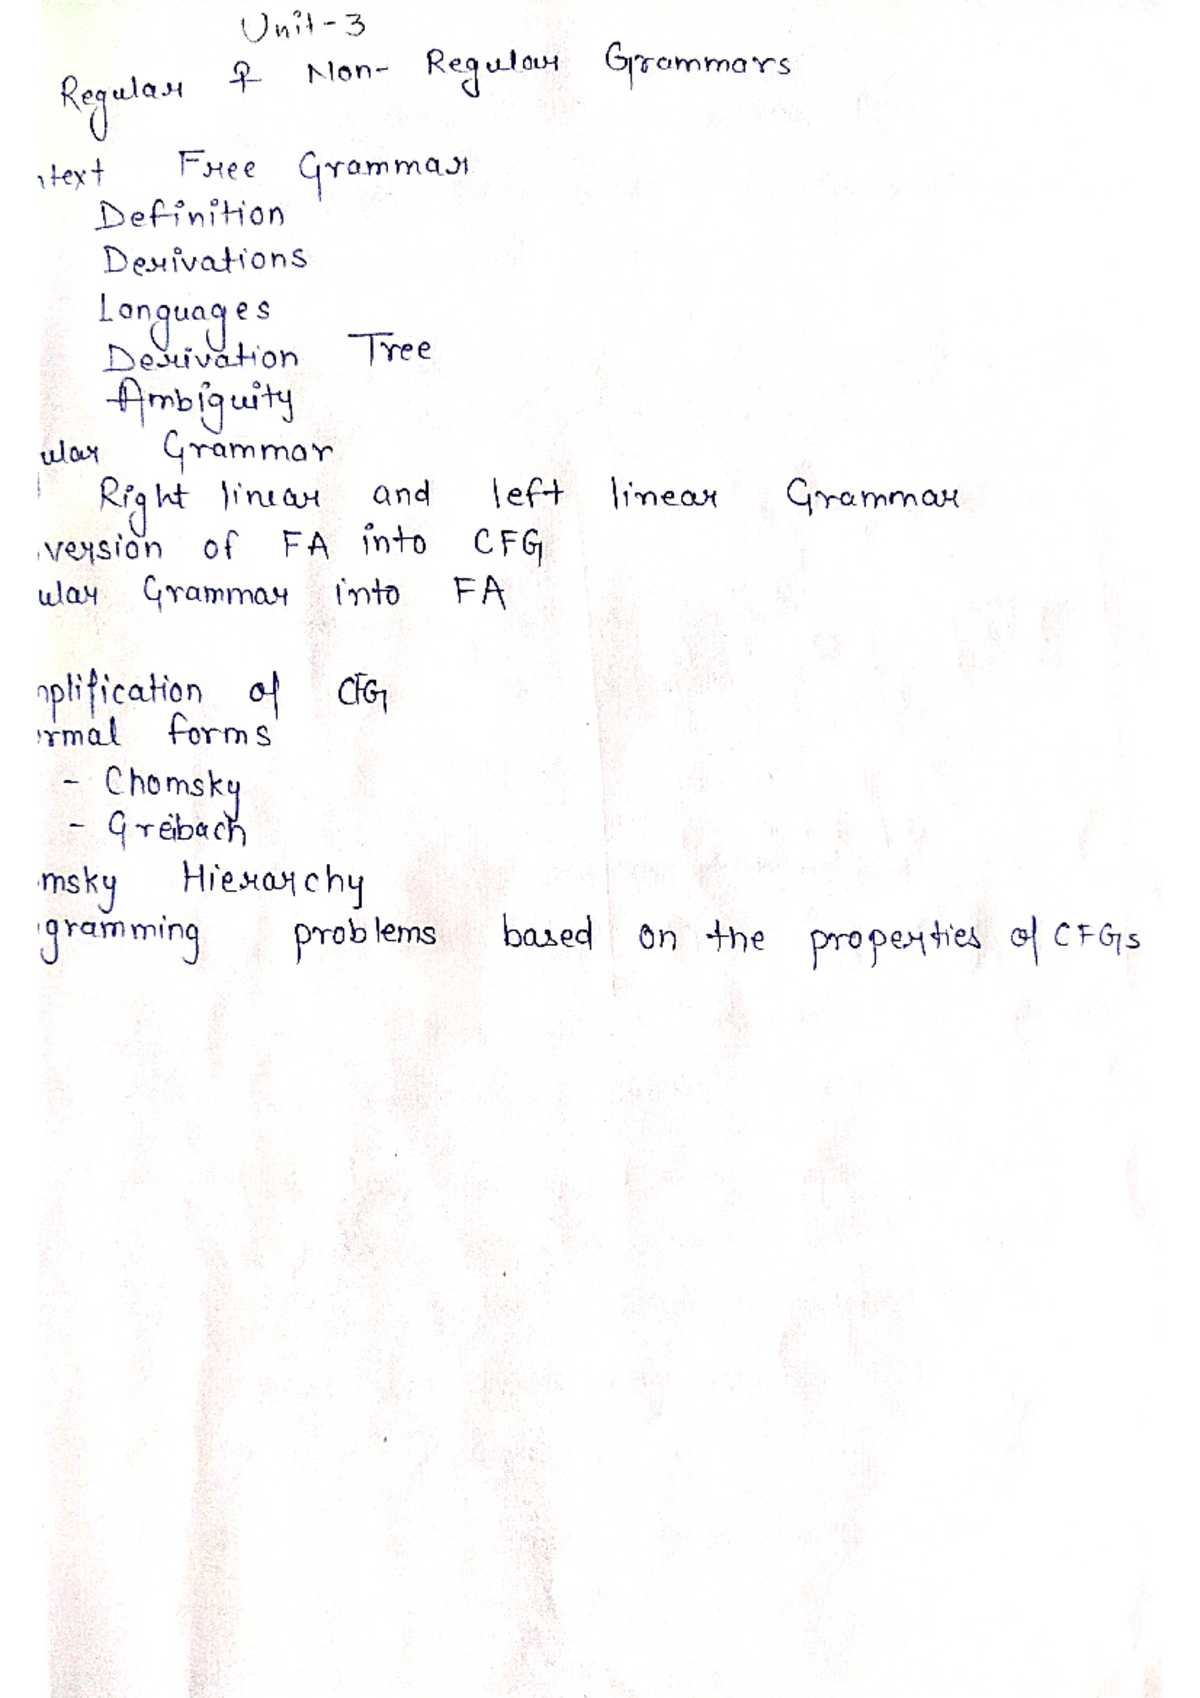 Unit-3
Regular & Non- Regular Grammars
text Free Grammar
Definition
Derivations
Languages
Derivation Tree
Ambiguity
ular Grammar
Right linear and left linear Grammar
version of FA into CFG
ular Grammar into FA
mplification of CFG
ormal forms
- Chomsky
- Greibach
msky Hierarchy
gramming problems based on the properties of CFGs